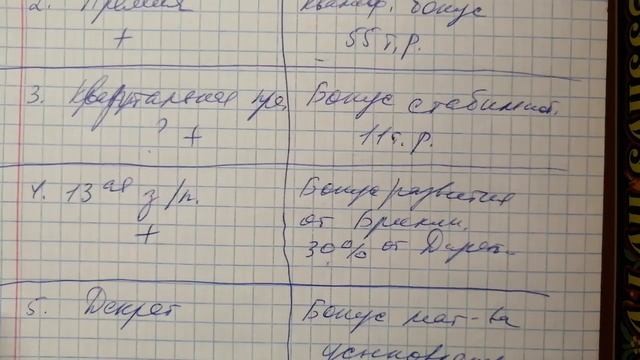 2. Премия
+
квалиф. бонус
55 т.р.
3. Квартальная пре.
? +
Бонус стабильност.
11 т.р.
4. 13ая з/п.
+
Бонус развития
от Брилли.
30% от Дирет.
5. Декрет
Бонус мат-ва